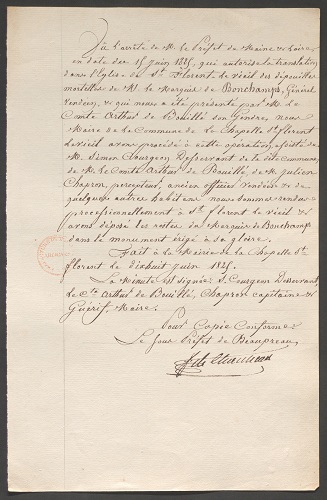 Vû l'arrêté de M. le Préfet de Maine & Loire
en date du 15 juin 1825, qui autorise la translation
dans l'Eglise de St. Florent le vieil des dépouilles
mortelles de M. le Marquis de Bonchamps, Général
Vendéen, & qui nous a été présenté par M. le
Comte Arthur de Bouillé son Gendre, nous
Maire de la Commune de La Chapelle St. florent
le vieil avons procédé à cette opération, assisté de
M. Simon Courgeon Desservant de la dite Commune,
de M. le Comte Arthur de Bouillé, de M. Julien
Chapron, percepteur, ancien officier Vendéen & de
quelques autres habitans nous sommes rendus
processionnellement à St. florent le vieil &
avons déposé les restes du Marquis de Bonchamps
dans le monument érigé à sa gloire.
Fait à la Mairie de la Chapelle St.
florent le dixhuit juin 1825.
La Minute est signée S. Courgeon Desservant,
Le Cte. Arthur de Bouillé, Chapron capitaine &
Guérif, Maire.
Pour Copie Conforme
Le Sous Préfet de Beaupreau